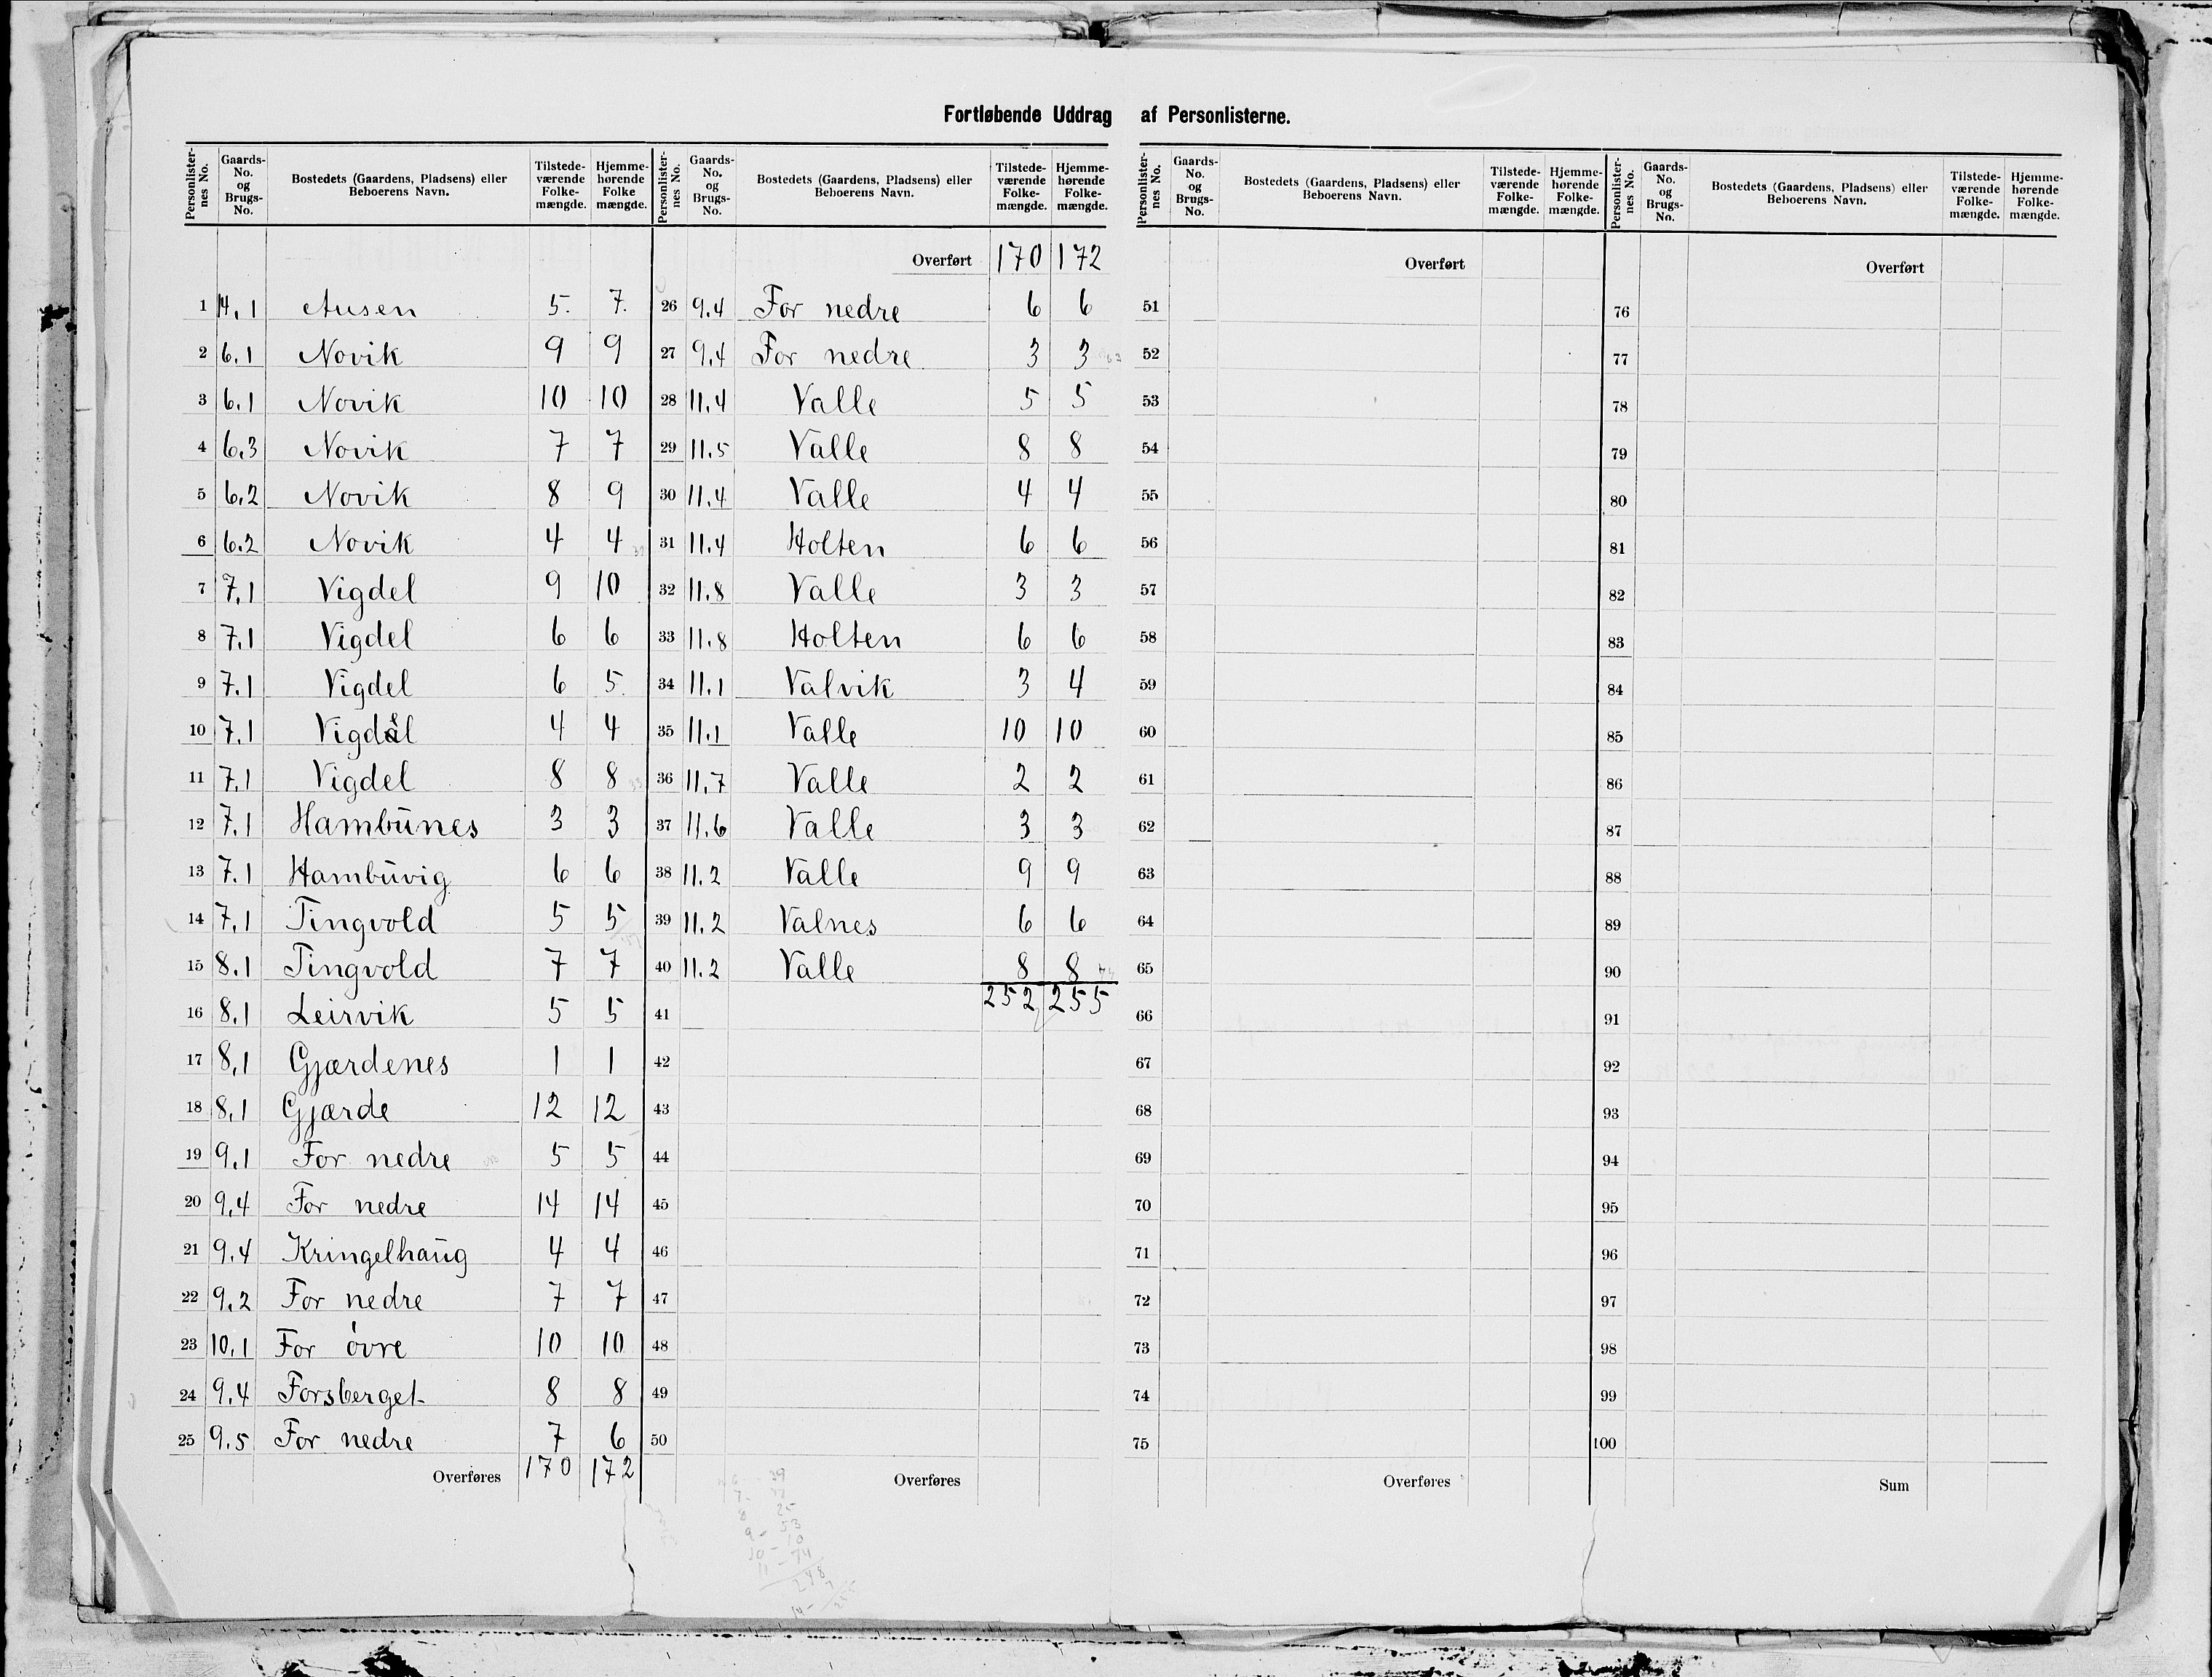 Fortløbende Uddrag af Personlisterne.
Personlisternes No. Gaards-No. og Brugs-No. Bostedets (Gaardens, Pladsens) eller Beboerens Navn. Tilstedeværende Folkemængde. Hjemmehørende Folkemængde.
1 4.1 Ausen 5. 7.
2 6.1 Novik 9 9
3 6.1 Novik 10 10
4 6.3 Novik 7 7
5 6.2 Novik 8 9
6 6.2 Novik 4 4
7 7.1 Vigdel 9 10
8 7.1 Vigdel 6 6
9 7.1 Vigdel 6 5
10 7.1 Vigdel 4 4
11 7.1 Vigdel 8 8
12 7.1 Hambunes 3 3
13 7.1 Hambuvig 6 6
14 7.1 Tingvold 5 5
15 8.1 Tingvold 7 7
16 8.1 Leirvik 5 5
17 8.1 Gjærdenes 1 1
18 8.1 Gjærde 12 12
19 9.1 For nedre 5 5
20 9.4 For nedre 14 14
21 9.4 Kringelhaug 4 4
22 9.2 For nedre 7 7
23 10.1 For övre 10 10
24 9.4 Forsberget 8 8
25 9.5 For nedre 7 6
Overføres 170 172
Personlisternes No. Gaards-No. og Brugs-No. Bostedets (Gaardens, Pladsens) eller Beboerens Navn. Tilstedeværende Folkemængde. Hjemmehørende Folkemængde.
Overført 170 172
26 9.4 For nedre 6 6
27 9.4 For nedre 3 3
28 11.4 Valle 5 5
29 11.5 Valle 8 8
30 11.4 Valle 4 4
31 11.4 Holten 6 6
32 11.8 Valle 3 3
33 11.8 Holten 6 6
34 11.1 Valvik 3 4
35 11.1 Valle 10 10
36 11.7 Valle 2 2
37 11.6 Valle 3 3
38 11.2 Valle 9 9
39 11.2 Valnes 6 6
40 11.2 Valle 8 8
252 255
41
42
43
44
45
46
47
48
49
50
Overføres
Personlisternes No. Gaards-No. og Brugs-No. Bostedets (Gaardens, Pladsens) eller Beboerens Navn. Tilstedeværende Folkemængde. Hjemmehørende Folkemængde.
Overført
51
52
53
54
55
56
57
58
59
60
61
62
63
64
65
66
67
68
69
70
71
72
73
74
75
Overføres
Personlisternes No. Gaards-No. og Brugs-No. Bostedets (Gaardens, Pladsens) eller Beboerens Navn. Tilstedeværende Folkemængde. Hjemmehørende Folkemængde.
Overført
76
77
78
79
80
81
82
83
84
85
86
87
88
89
90
91
92
93
94
95
96
97
98
99
100
Sum